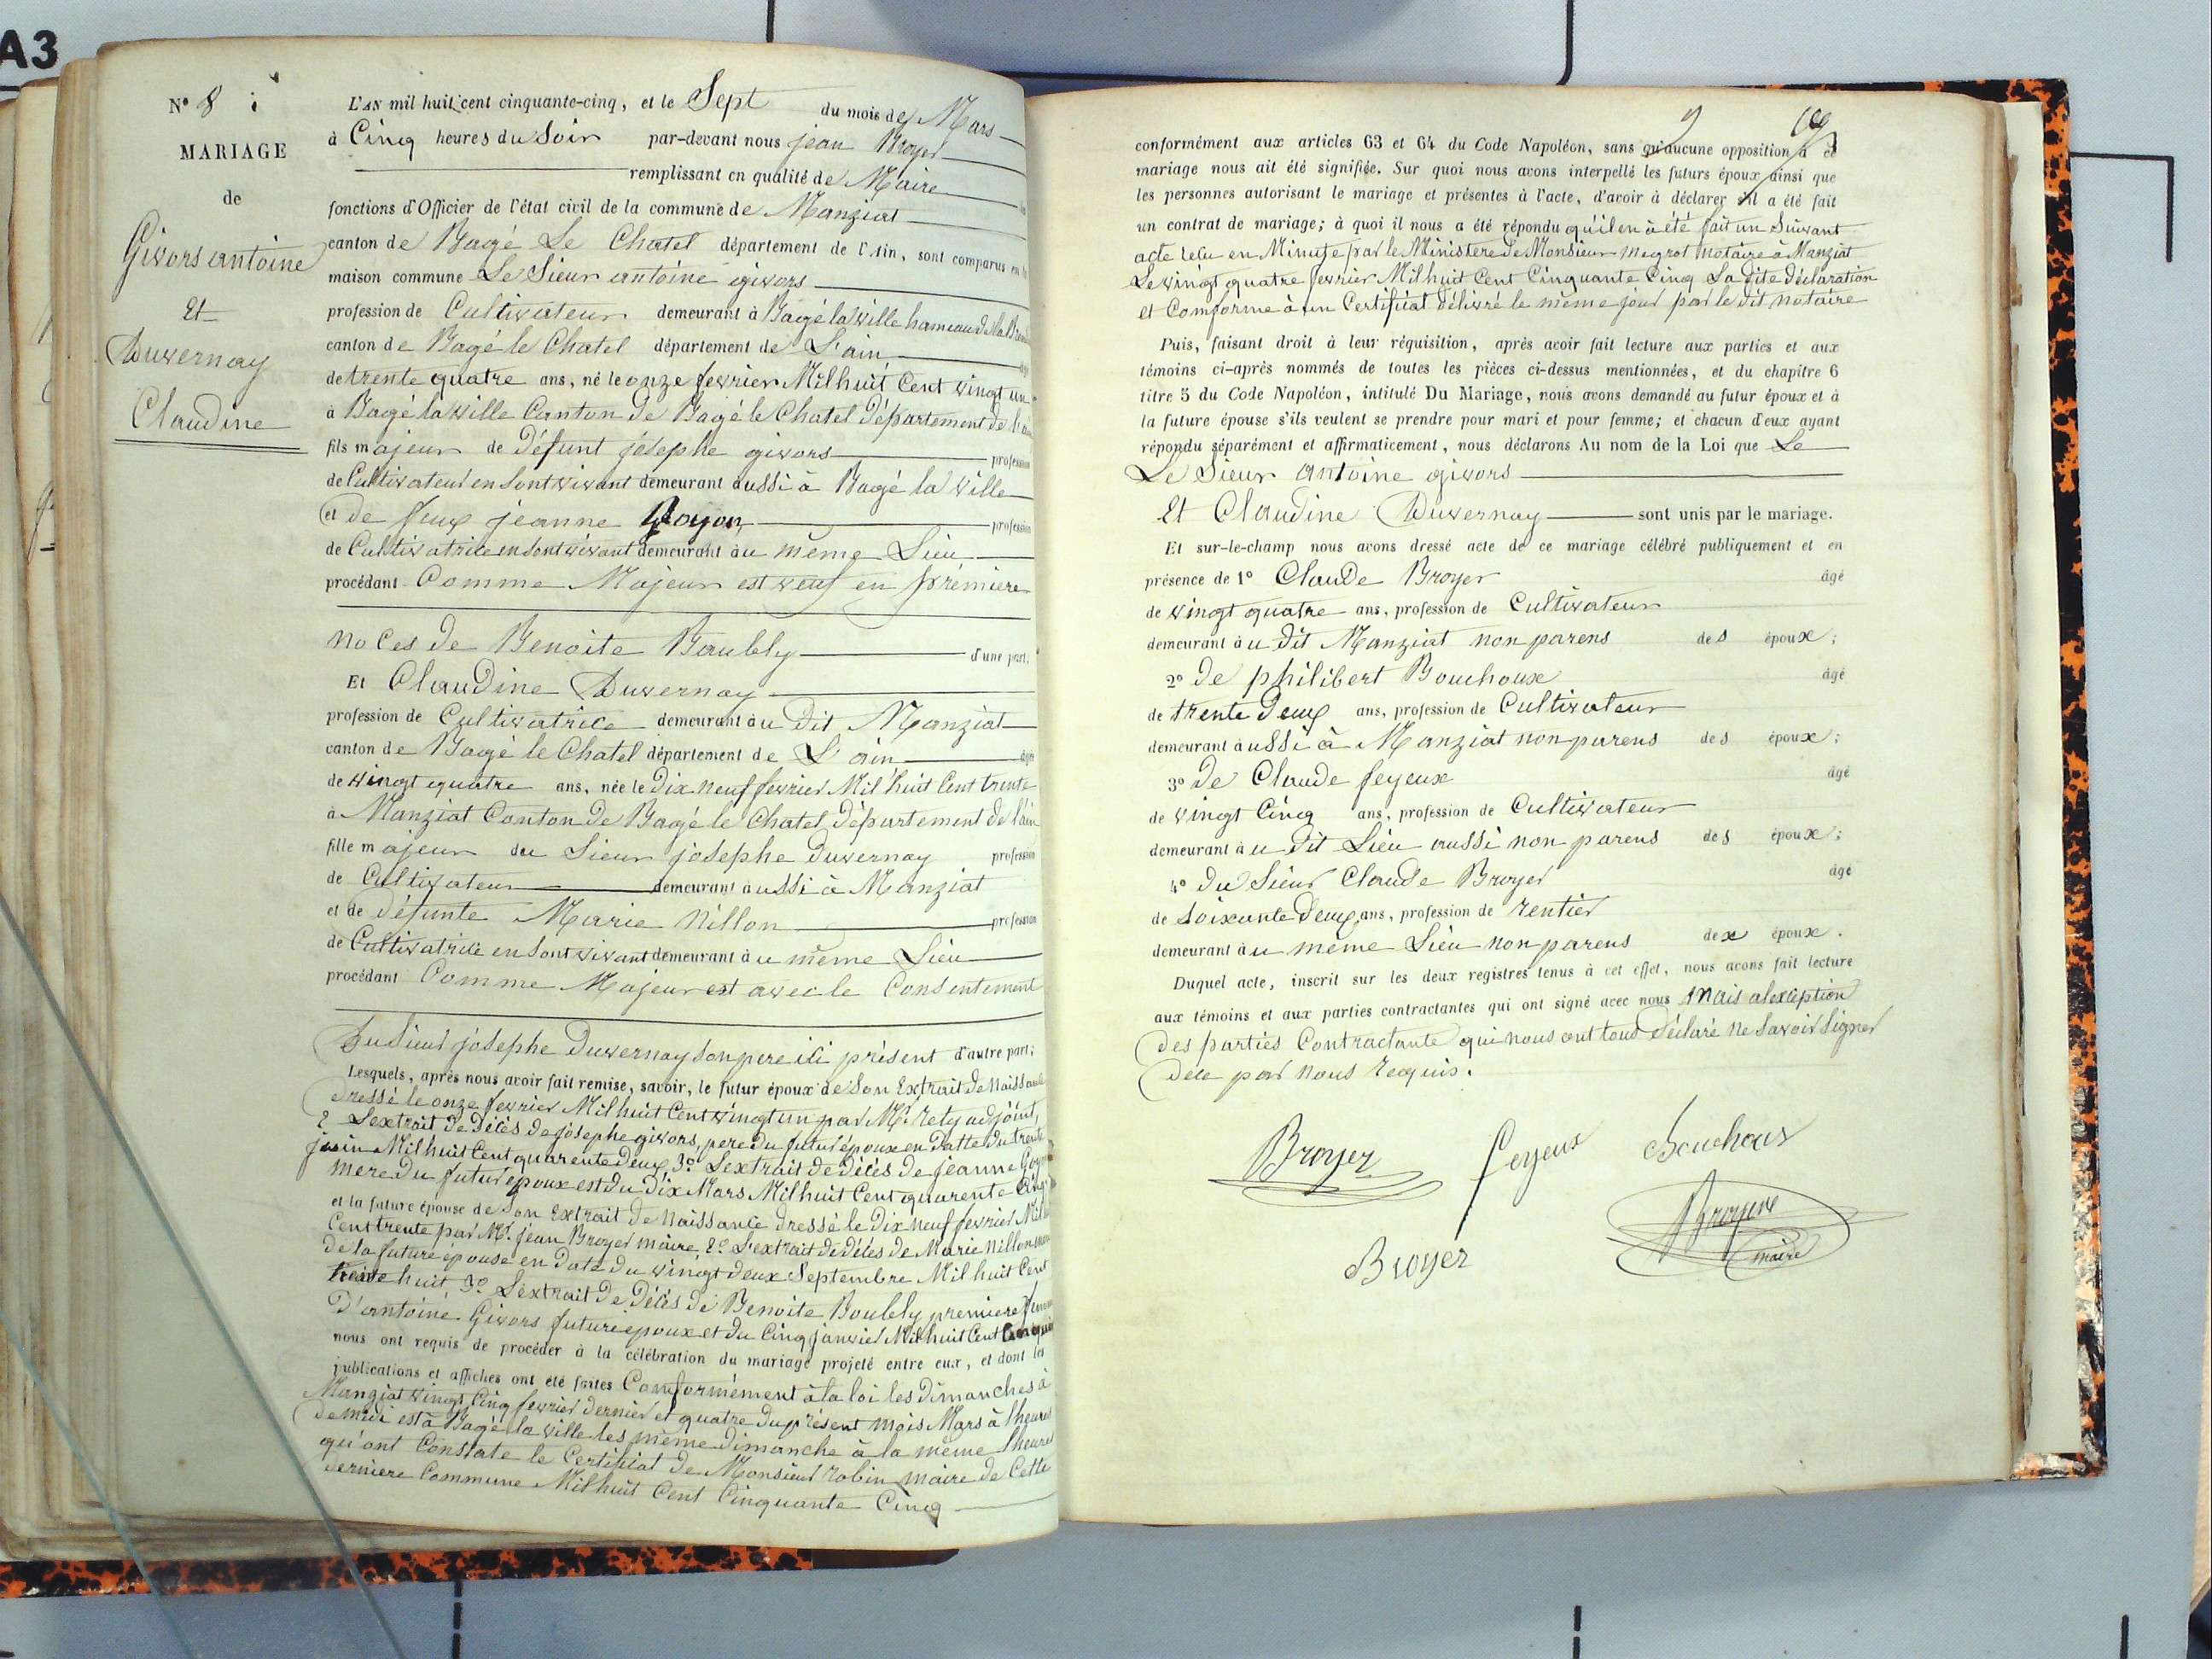 A3
N° 8
MARIAGE
de
Givors antoine
Et
Duvernay
Claudine
L'AN mil huit cent cinquante-cinq, et le Sept du mois de Mars
à Cinq heures du Soir par-devant nous jean Broyer
remplissant en qualité de Maire
fonctions d'Officier de l'état civil de la commune de Manziat
canton de Bagé Le Chatel département de l'Ain, sont comparus en la
maison commune Le Sieur antoine givors
profession de Cultivateur demeurant à Bagé la ville hameau de la
canton de Bagé le Chatel département de L'ain
de trente quatre ans, né le onze fevrier Mil huit Cent vingt un
à Bagé la Ville Canton de Bagé le Chatel Département de l'ain
fils majeur de Défunt josephe givors profession
de Cultivateur en Sont vivant demeurant aussi à Bagé la Ville
et de feux jeanne Goyon profession
de Cultivatrice en Sont vivant demeurant au même Lieu
procédant Comme Majeur est veuf en première
noces de Benoite Boubly d'une part,
Et Claudine Duvernay
profession de Cultivatrice demeurant au Dit Manziat
canton de Bagé le Chatel département de L'ain âgée
de vingt quatre ans, née le Dix neuf fevrier Mil huit Cent trente
à Manziat Conton de Bagé le Chatel Département de l'ain
fille majeur du Sieur josephe Duvernay profession
de Cultivateur demeurant aussi à Manziat
et de défunte Marie Nillon profession
de Cultivatrice en Sont vivant demeurant au même Lieu
procédant Comme Majeur est avec le Consentement
Du Sieur josephe Duvernay Son pere ici présent d'autre part;
Lesquels, après nous avoir fait remise, savoir, le futur époux de Son Extrait de Naissance
dressé le onze fevrier Mil huit Cent vingt un par Mr. rety adjoint,
2 L'extrait de Décès de josephe givors, pere du futur époux en Datte du trente
juin Mil huit Cent quarente deux 3° L'extrait de décès de jeanne Goyon
mere du futur époux est du Dix Mars Mil huit Cent quarente Cinq
et la future épouse de Son Extrait de Naissance dressé le Dix neuf fevrier Mil
Cent trente par Mr. jean Broyer maire, 2° L'extrait de décès de Marie Nillon mere
de la future épouse en Date du vingt deux Septembre Mil huit Cent
trente huit 3° L'extrait de Décès de Benoite Boubly premiere femme
D'antoine Givors future époux et du Cinq janvier Mil huit Cent
nous ont requis de procéder à la célébration du mariage projeté entre eux, et dont les
publications et affiches ont été faites Conformément à la loi les Dimanches à
Manziat vingt Cinq fevrier dernier et quatre du présent mois Mars à l'heure
de midi est à Bagé la ville les même dimanche à la même l'heure
qu'ont Constate le Certificat de Monsieur robin maire de Cette
derniere Commune Mil huit Cent Cinquante Cinq
9
conformément aux articles 63 et 64 du Code Napoléon, sans qu'aucune opposition à ce
mariage nous ait été signifiée. Sur quoi nous avons interpellé les futurs époux ainsi que
les personnes autorisant le mariage et présentes à l'acte, d'avoir à déclarer s'il a été fait
un contrat de mariage; à quoi il nous a été répondu qu'il en à été fait un Suivant
acte recu en Minute par le Ministere de Monsieur megrot notaire à Manziat
Le vingt quatre fevrier Mil huit Cent Cinquante Cinq La dite déclaration
et Comforme à un Certificat délivré le même jour par le dit notaire
Puis, faisant droit à leur réquisition, après avoir fait lecture aux parties et aux
témoins ci-après nommés de toutes les pièces ci-dessus mentionnées, et du chapitre 6
titre 5 du Code Napoléon, intitulé Du Mariage, nous avons demandé au futur époux et à
la future épouse s'ils veulent se prendre pour mari et pour femme; et chacun d'eux ayant
répondu séparément et affirmativement, nous déclarons Au nom de la Loi que Le
Le Sieur antoine givors
Et Claudine Duvernay sont unis par le mariage.
Et sur-le-champ nous avons dressé acte de ce mariage célébré publiquement et en
présence de 1° Claude Broyer âgé
de vingt quatre ans, profession de Cultivateur
demeurant au dit Manziat non parens des époux;
2° De philibert Bouchoux âgé
de trente deux ans, profession de Cultivateur
demeurant aussi à Manziat non parens des époux;
3° de Claude feyeux âgé
de vingt Cinq ans, profession de Cultivateur
demeurant au dit Lieu aussi non parens des époux;
4° du Sieur Claude Broyer âgé
de Soixante deux ans, profession de rentier
demeurant au même Lieu non parens dex époux.
Duquel acte, inscrit sur les deux registres tenus à cet effet, nous avons fait lecture
aux témoins et aux parties contractantes qui ont signé avec nous mais alexception
des parties Contractante qui nous ont tous déclaré ne Savoir Signer
dece par nous requis.
Broyer feyeux Bouchoux
Broyer Broyer
maire